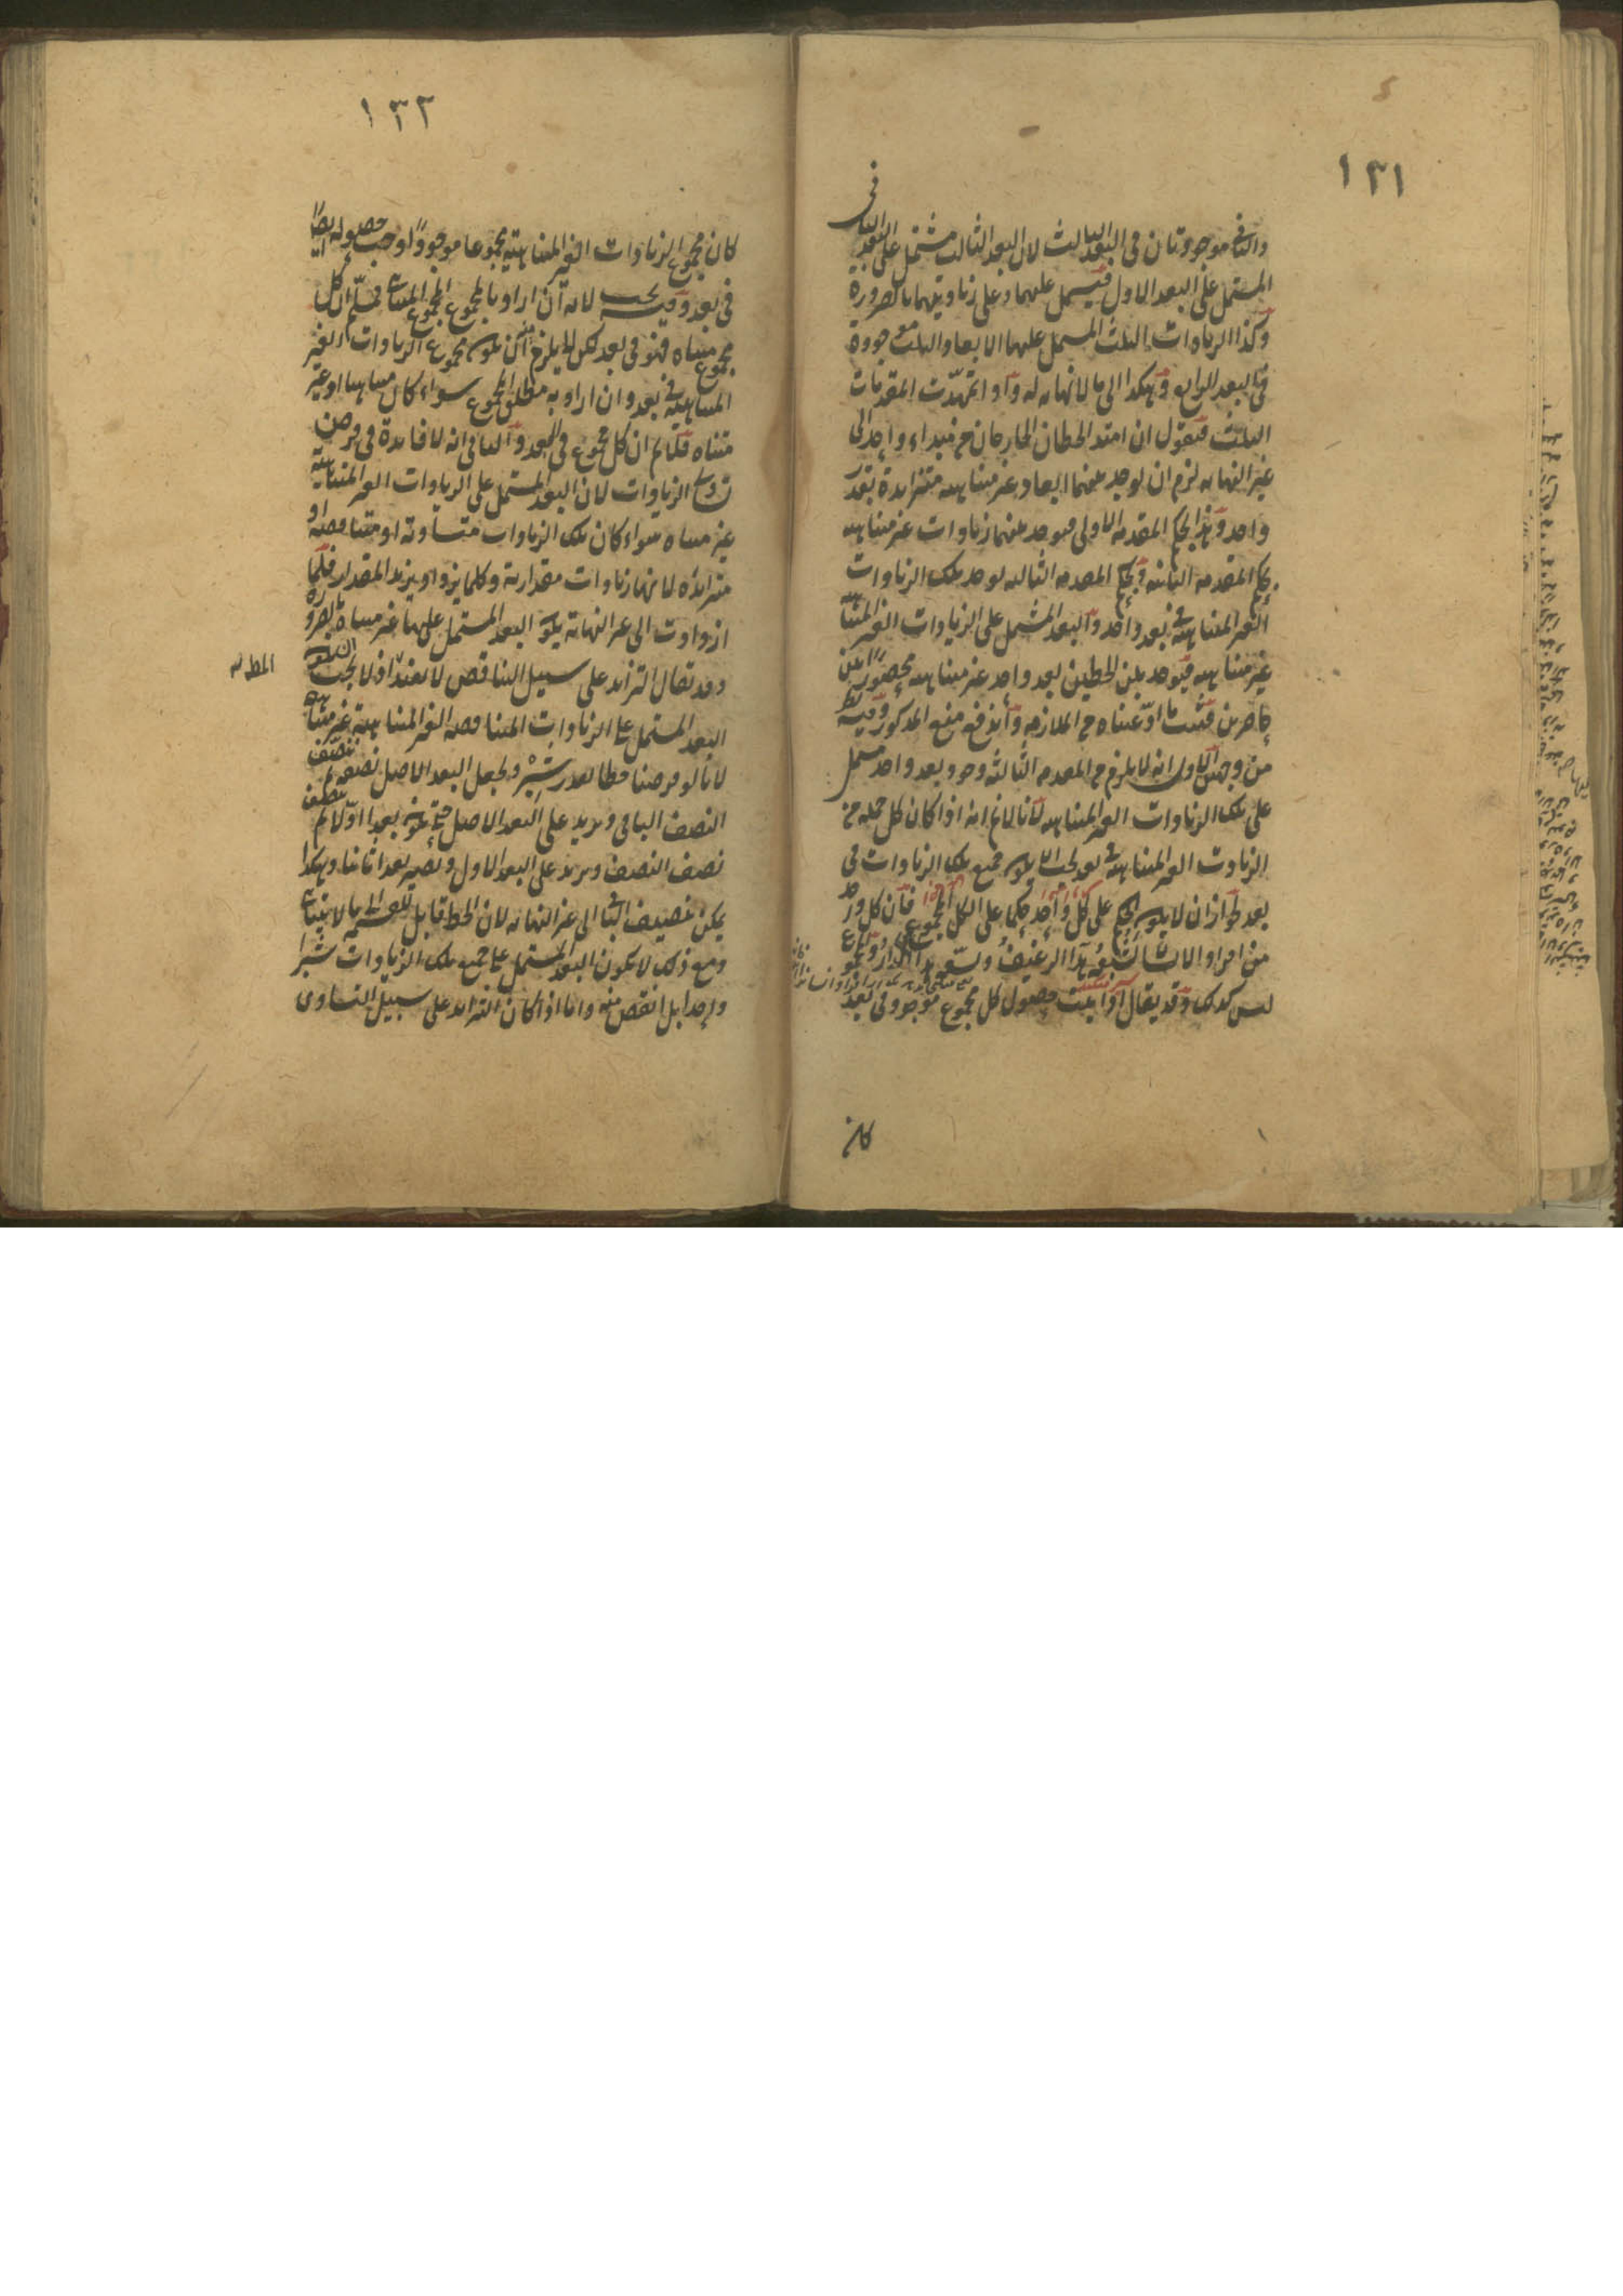 ١٣١
والثانى موجودتان فى البعد الثالث لان البعد الثالث مشتمل على البعد الثانى
المشتمل على البعد الاول فيشتمل عليهما وعلى زيادتيهما بالضرورة
وكذا الزيادات الثلث المشتمل عليها الابعاد الثلث موجودة
فى البعد الرابع وهكذا الى ما لا نهاية له واذا تمهدت المقدمات
الثلث فنقول ان امتد الخطان الخارجان من مبداء واحد الى
غير النهاية لزم ان يوجد بينهما ابعاد غير متناهية متزايدة بقدر
واحد وهذا بحكم المقدمة الاولى فيوجد بينهما زيادات غير متناهية
بحكم المقدمة الثانية وبحكم المقدمة الثالثة يوجد تلك الزيادات
الغير المتناهية فى بعد واحد والبعد المشتمل على الزيادات الغير المتناهية
غير متناهية فيوجد بين الخطين بعد واحد غير متناهية محصورا بين
حاصرين فثبت ما ادعيناه من الملازمة واندفع منع المذكور وفيه نظر
من وجهين الاول انه لا يلزم من المقدمة الثالثة وجود بعد واحد مشتمل
على تلك الزيادات الغير المتناهية لانا لا نم انه اذا كان كل جملة من
الزيادت الغير المتناهية فى بعد يجب ان يكون جميع تلك الزيادات فى
بعد لجواز ان لا يكون الحكم على كل واحد حكما على الكل المجموع فان كل فرد
من افراد الانسان يشبعه هذا الرغيف ويسعه هذا الدار والمجموع
ليس كذلك وقد يقال اذا ثبت حصول كل مجموع موجود فى بعد
كان
١٣٢
كان مجموع الزيادات الغير المتناهية مجموعا موجودا لوجب حصوله ايضا
فى بعد وفيه بحث لانه ان اراد بالمجموع المجموع المتناهى فمسلم ان كل
مجموع متناه فهو فى بعد لكن لا يلزم منه ان يكون مجموع الزيادات الغير
المتناهية فى بعد وان اراد به مطلق المجموع سواء كان متناهيا او غير
متناه فلا نم ان كل مجموع فى البعد والثانى انه لا فائدة فى فرض
تساوى الزيادات لان البعد المشتمل على الزيادات الغير المتناهية
غير متناه سواء كان تلك الزيادات متساوية او متناقصة او
متزايدة لانها زيادات مقدارية وكلما يزداد يزيد المقدار فلما
ازدادت الى غير النهاية يكون البعد المشتمل عليها غير متناه بالضرورة
وقد يقال التزايد على سبيل التناقص لا يفيد اذ لا يجب ان يكون
المطلـ
البعد المشتمل على الزيادات المتناقصة الغير المتناهية غير متناهية
لانا لو فرضنا خطا بقدر شبر ونجعل البعد الاصل نصفه ثم ننصف
النصف الباقى ونزيد على البعد الاصل حتى يكون بعدا اولا ثم ننصف
نصف النصف ونزيد على البعد الاول ونصير بعدا ثانيا وهكذا
يمكن تنصيف الباقى الى غير النهاية لان الخط قابل للقسمة الى ما لا يتناهى
ومع ذلك لا يكون البعد المشتمل على جميع تلك الزيادات شبرا
واحدا بل انقص منه واما اذا كان التزايد على سبيل التساوى